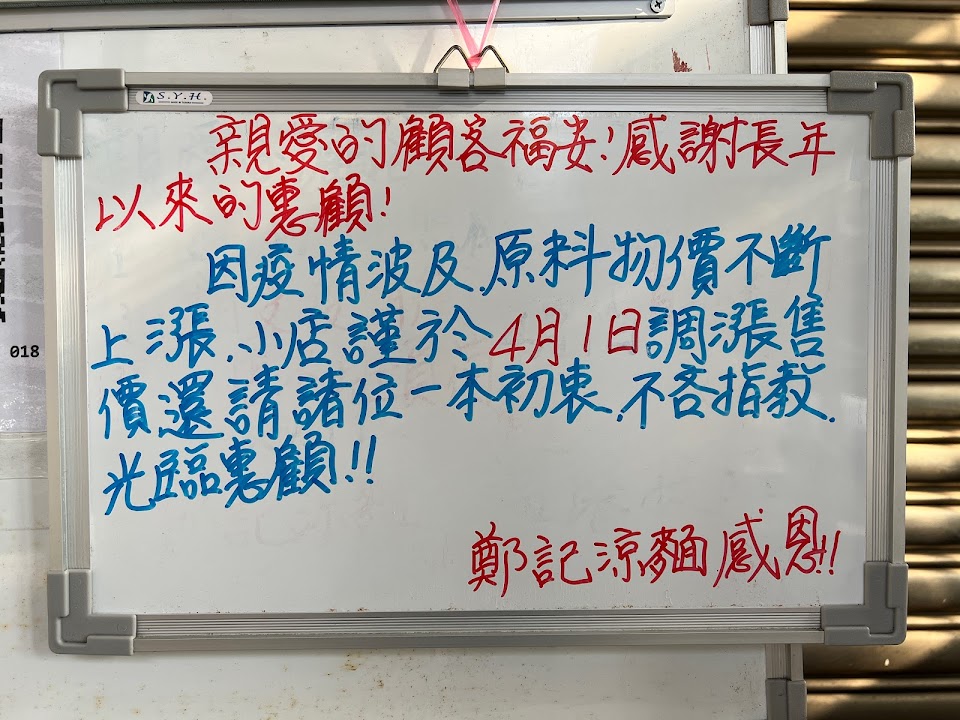 S.Y.H.
親愛的顧客福安!感謝長年
以來的惠顧!
因疫情波及,原料物價不斷
上漲,小店謹於4月1日調漲售
價還請諸位一本初衷,不吝指教,
光臨惠顧!!
鄭記涼麵感恩!!
018